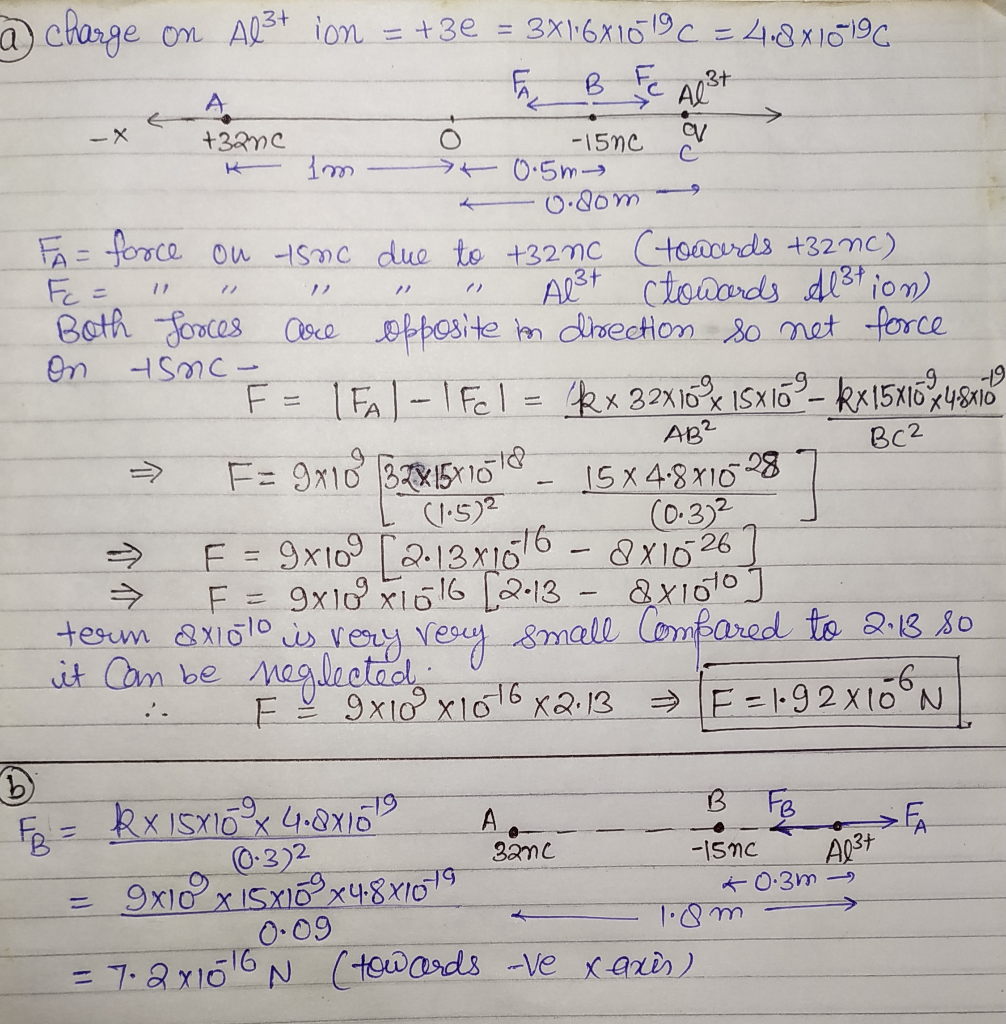 a) charge on Al³⁺ ion = +3e = 3×1.6×10⁻¹⁹C = 4.8×10⁻¹⁹C
F_A B F_C Al³⁺
A
-x +32nC O -15nC q
C
1m 0.5m
0.80m
F_A = force on -15nC due to +32nC (towards +32nC)
F_C = " " " " " Al³⁺ (towards Al³⁺ ion)
Both forces are opposite in direction so net force
on -15nC -
F = |F_A| - |F_C| = k×32×10⁻⁹×15×10⁻⁹/AB² - k×15×10⁻⁹×4.8×10⁻¹⁹/BC²
⇒ F = 9×10⁹ [32×15×10⁻¹⁸/(1.5)² - 15×4.8×10⁻²⁸/(0.3)²]
⇒ F = 9×10⁹ [2.13×10⁻¹⁶ - 8×10⁻²⁶]
⇒ F = 9×10⁹×10⁻¹⁶ [2.13 - 8×10⁻¹⁰]
term 8×10⁻¹⁰ is very very small Compared to 2.13 so
it Can be neglected.
∴ F = 9×10⁹×10⁻¹⁶×2.13 ⇒ F = 1.92×10⁻⁶N
b)
F_B = k×15×10⁻⁹×4.8×10⁻¹⁹/(0.3)²
A B F_B F_A
32nC -15nC Al³⁺
0.3m
1.8m
= 9×10⁹×15×10⁻⁹×4.8×10⁻¹⁹/0.09
= 7.2×10⁻¹⁶ N (towards -ve x axis)